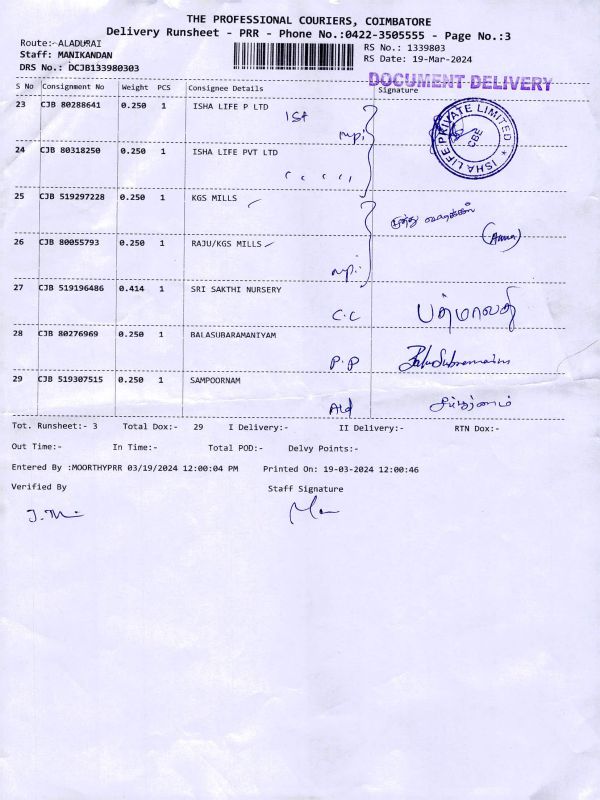 THE PROFESSIONAL COURIERS, COIMBATORE
Delivery Runsheet - PRR - Phone No.:0422-3505555 - Page No.:3
Route:- ALADURAI
RS No.: 1339803
Staff: MANIKANDAN
RS Date: 19-Mar-2024
DRS No.: DCJB133980303
DOCUMENT DELIVERY
S No Consignment No Weight PCS Consignee Details Signature
23 CJB 80288641 0.250 1 ISHA LIFE P LTD
ISHA LIFE PRIVATE LIMITED
CBE
24 CJB 80318250 0.250 1 ISHA LIFE PVT LTD
25 CJB 519297228 0.250 1 KGS MILLS
26 CJB 80055793 0.250 1 RAJU/KGS MILLS
27 CJB 519196486 0.414 1 SRI SAKTHI NURSERY
C.C பத்மாவதி
28 CJB 80276969 0.250 1 BALASUBARAMANIYAM
P.P
29 CJB 519307515 0.250 1 SAMPOORNAM
Ald
Tot. Runsheet:- 3 Total Dox:- 29 I Delivery:- II Delivery:- RTN Dox:-
Out Time:- In Time:- Total POD:- Delvy Points:-
Entered By :MOORTHYPRR 03/19/2024 12:00:04 PM Printed On: 19-03-2024 12:00:46
Verified By Staff Signature